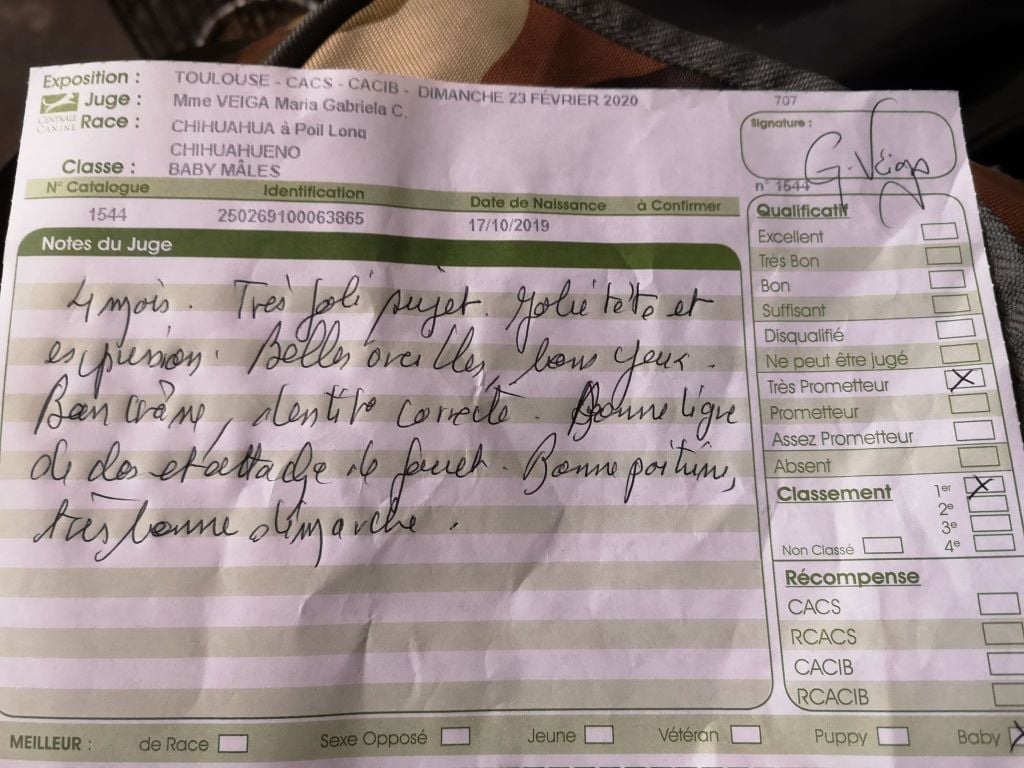 Exposition : TOULOUSE - CACS - CACIB - DIMANCHE 23 FÉVRIER 2020
Juge : Mme VEIGA Maria Gabriela C.
CENTRALE CANINE
Race : CHIHUAHUA à Poil Long
CHIHUAHUENO
Classe : BABY MÂLES
707
Signature :
G. Veiga
n° 1544
N° Catalogue Identification Date de Naissance à Confirmer
1544 250269100063865 17/10/2019
Notes du Juge
4 mois. Très joli sujet. Jolie tête et
expression. Belles oreilles, bons yeux.
Bon crâne, dentité correcte. Bonne ligne
de dos et attache de fouet. Bonne poitrine,
très bonne démarche.
Qualificatif
Excellent
Très Bon
Bon
Suffisant
Disqualifié
Ne peut être jugé
Très Prometteur X
Prometteur
Assez Prometteur
Absent
Classement 1er X
2e
3e
Non Classé 4e
Récompense
CACS
RCACS
CACIB
RCACIB
MEILLEUR : de Race Sexe Opposé Jeune Vétéran Puppy Baby X